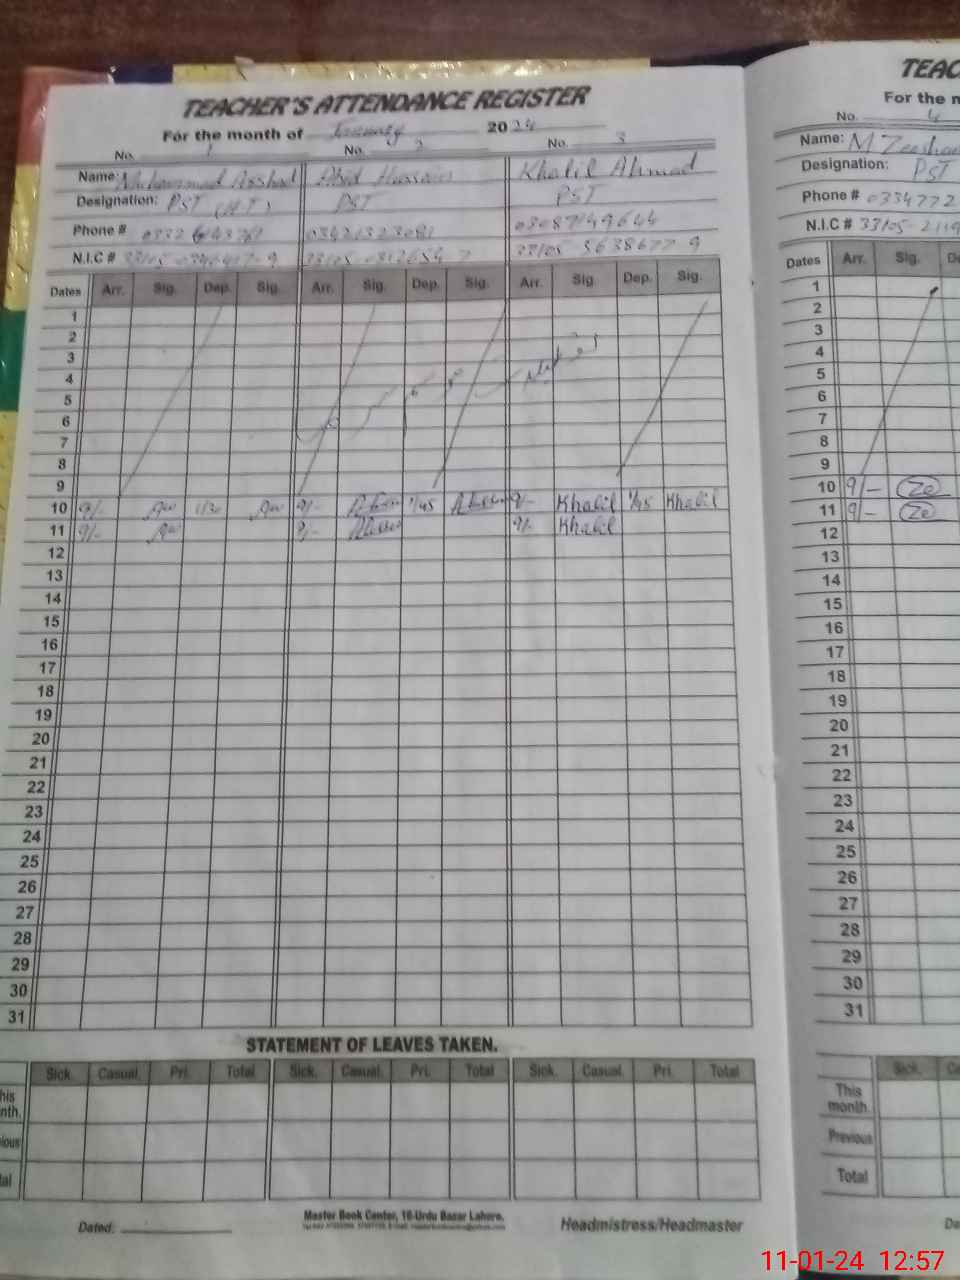 TEACHER'S ATTENDANCE REGISTER
For the month of January 2024
No. 1 No. 2 No. 3
Name: Muhammad Arshad Abid Hussain Khalil Ahmad
Designation: PST (H.T) PST PST
Phone # 03421323081 03087149644
N.I.C # 33105
Dates Arr. Sig. Dep. Sig. Arr. Sig. Dep. Sig. Arr. Sig. Dep. Sig.
1
2
3
4
5
6
7
8
9
10 9/- 1/30 9/- 1/45 9/- Khalil 1/45 Khalil
11 9/- 9/- 9/- Khalil
12
13
14
15
16
17
18
19
20
21
22
23
24
25
26
27
28
29
30
31
STATEMENT OF LEAVES TAKEN.
Sick. Casual. Pri. Total Sick. Casual. Pri. Total Sick. Casual. Pri. Total
his
nth.
ious
tal
Dated:
Master Book Center, 16-Urdu Bazar Lahore.
Headmistress/Headmaster
TEAC
For the m
No. 4
Name: M Zeeshan
Designation: PST
Phone # 0334772
N.I.C # 33105-2119
Dates Arr. Sig. De
1
2
3
4
5
6
7
8
9
10 9/- Ze
11 9/- Ze
12
13
14
15
16
17
18
19
20
21
22
23
24
25
26
27
28
29
30
31
Sick. Ca
This
month.
Previous
Total
Da
11-01-24 12:57